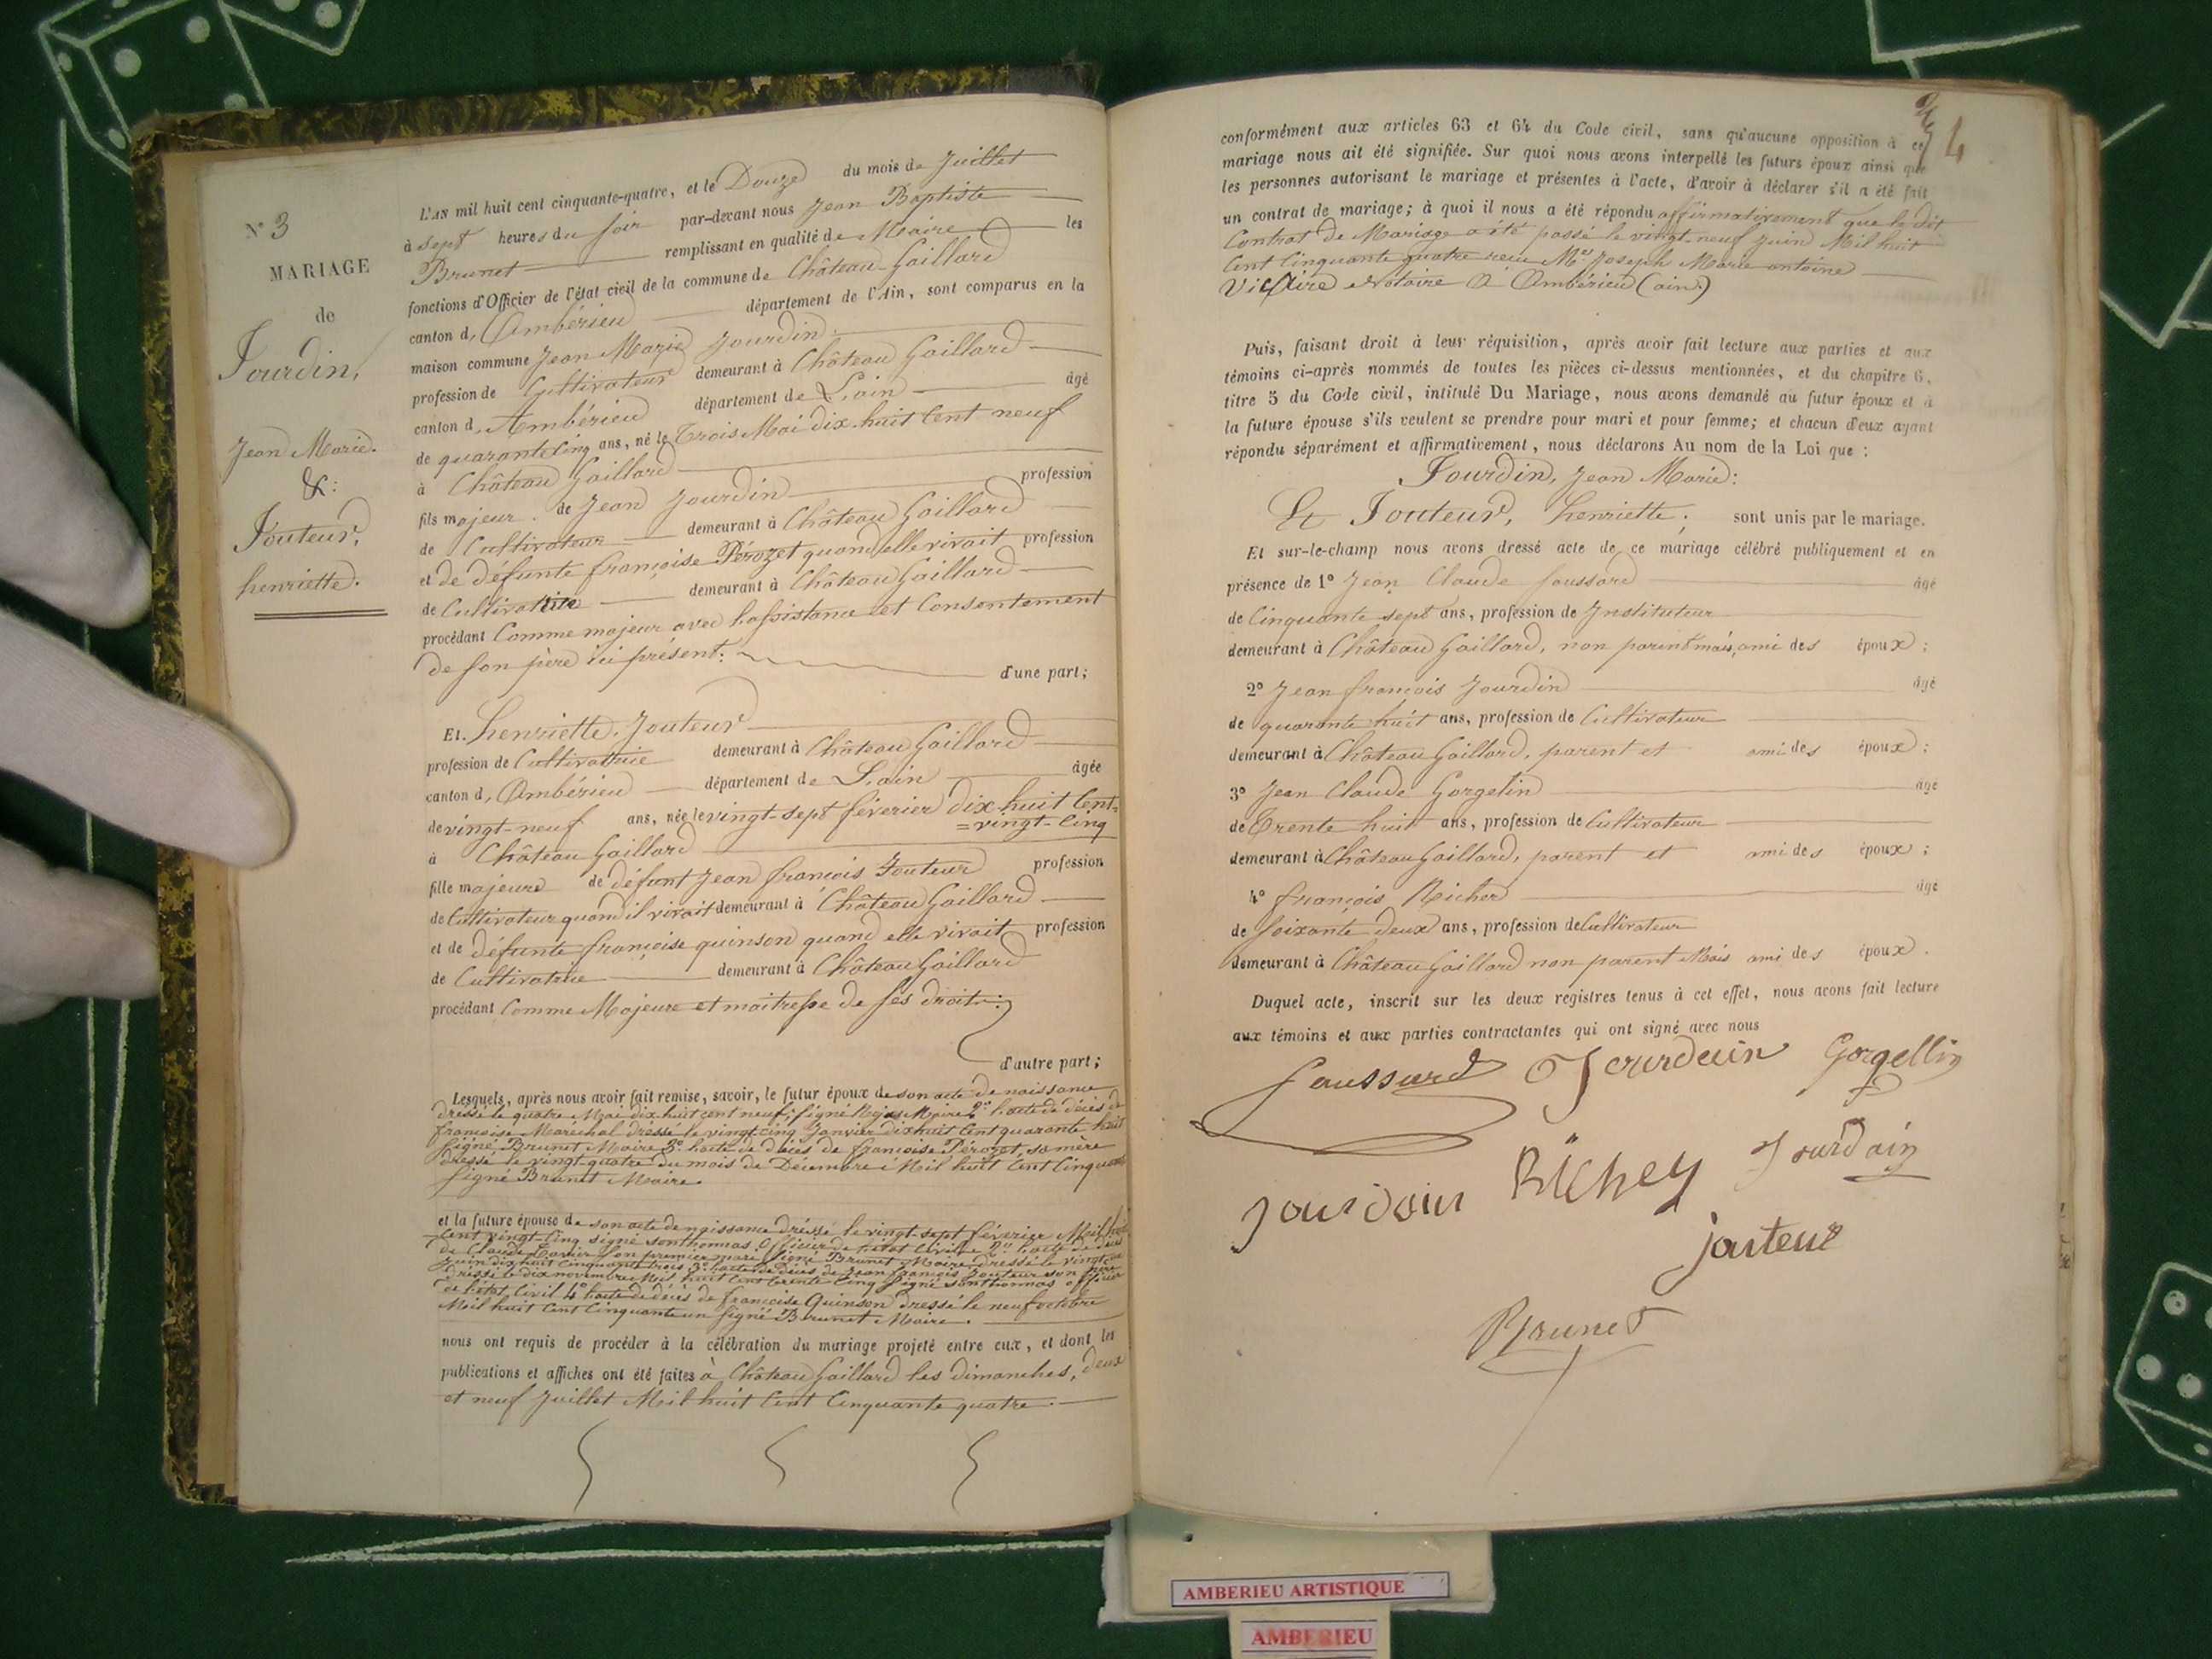 N° 3
MARIAGE
de
Jourdin,
Jean Marie.
&:
Jouteur,
henriette.
L'AN mil huit cent cinquante-quatre, et le Douze du mois de Juillet
à sept heures du soir par-devant nous Jean Baptiste
Brunet remplissant en qualité de Maire les
fonctions d'Officier de l'état civil de la commune de Château-Gaillard
canton d, Ambérieu département de l'Ain, sont comparus en la
maison commune Jean Marie Jourdin.
profession de Cultivateur demeurant à Château Gaillard
canton d, Ambérieu département de L'ain âgé
de quarante cinq ans, né le trois Mai dix-huit Cent neuf
à Château Gaillard
fils majeur. de Jean Jourdin profession
de Cultivateur demeurant à Château Gaillard
et de défunte françoise Pérozet quand elle vivait profession
de Cultivatrice demeurant à Château Gaillard
procédant Comme majeur avec L'assistance et Consentement
de son père ici présent: d'une part;
Et. henriette. Jouteur
profession de Cultivatrice demeurant à Château Gaillard
canton d, Ambérieu département de L'ain âgée
de vingt-neuf ans, née le vingt-sept féverier dix huit Cent=
=vingt-Cinq
à Château Gaillard
fille majeure de défunt Jean françois Jouteur profession
de Cultivateur quand il vivait demeurant à Château Gaillard
et de défunte françoise quinson quand elle vivait profession
de Cultivatrice demeurant à Château Gaillard
procédant Comme Majeure et maitresse de ses droits:
d'autre part;
Lesquels, après nous avoir fait remise, savoir, le futur époux de son acte de naissance
dressé le quatre Mai dix huit cent neuf; signé Maire 2° l'acte de décès de
françoise Maréchal dressé le vingt cinq Janvier dix huit Cent quarante huit
signé Brunet Maire 3° l'acte de décès de françoise Pérozet, sa mère
dressé le vingt-quatre du mois de Décembre Mil huit Cent Cinquante
signé Brunet Maire.
et la future épouse de son acte de naissance dressé le vingt-sept féverier Mil huit
Cent vingt-Cinq signé Sonthonnas Officier de l'état Civil 2° l'acte de décès
de Claude son premier mari signé Brunet Maire dressé le vingt
Juin dix huit Cinquante trois 3° l'acte de Décès de Jean françois Jouteur son père
dressé le dix novembre Mil huit Cent trente Cinq signé Sonthonnas officier
de l'état Civil 4° l'acte de décès de françoise Quinson dressé le neuf octobre
Mil huit Cent Cinquante un signé Brunet Maire.
nous ont requis de procéder à la célébration du mariage projeté entre eux, et dont les
publications et affiches ont été faites à Château Gaillard les dimanches, deux
et neuf Juillet Mil huit Cent Cinquante quatre.
4
conformément aux articles 63 et 64 du Code civil, sans qu'aucune opposition à ce
mariage nous ait été signifiée. Sur quoi nous avons interpellé les futurs époux ainsi que
les personnes autorisant le mariage et présentes à l'acte, d'avoir à déclarer s'il a été fait
un contrat de mariage; à quoi il nous a été répondu affirmativement que le dit
Contrat de Mariage a été passé le vingt-neuf Juin Mil huit
Cent Cinquante quatre Joseph Marie antoine
Victoire Notaire à Ambérieu (ain.)
Puis, faisant droit à leur réquisition, après avoir fait lecture aux parties et aux
témoins ci-après nommés de toutes les pièces ci-dessus mentionnées, et du chapitre 6,
titre 5 du Code civil, intitulé Du Mariage, nous avons demandé au futur époux et à
la future épouse s'ils veulent se prendre pour mari et pour femme; et chacun d'eux ayant
répondu séparément et affirmativement, nous déclarons Au nom de la Loi que :
Jourdin, Jean Marie:
Et Jouteur, henriette; sont unis par le mariage.
Et sur-le-champ nous avons dressé acte de ce mariage célébré publiquement et en
présence de 1° Jean Claude foussard âgé
de Cinquante sept ans, profession de Instituteur
demeurant à Château Gaillard, non parent mais, ami des époux;
2° Jean françois Jourdin âgé
de quarante huit ans, profession de Cultivateur
demeurant à Château Gaillard, parent et ami des époux;
3° Jean Claude Gorgelin âgé
de Trente huit ans, profession de Cultivateur
demeurant à Château Gaillard, parent et ami des époux;
4° françois Richer âgé
de soixante deux ans, profession de Cultivateur
demeurant à Château Gaillard non parent Mais ami des époux.
Duquel acte, inscrit sur les deux registres tenus à cet effet, nous avons fait lecture
aux témoins et aux parties contractantes qui ont signé avec nous
foussard Jourdain Gorgellin
Jourdain Richey Jourdain
jouteur
Brunet
AMBERIEU ARTISTIQUE
AMBERIEU